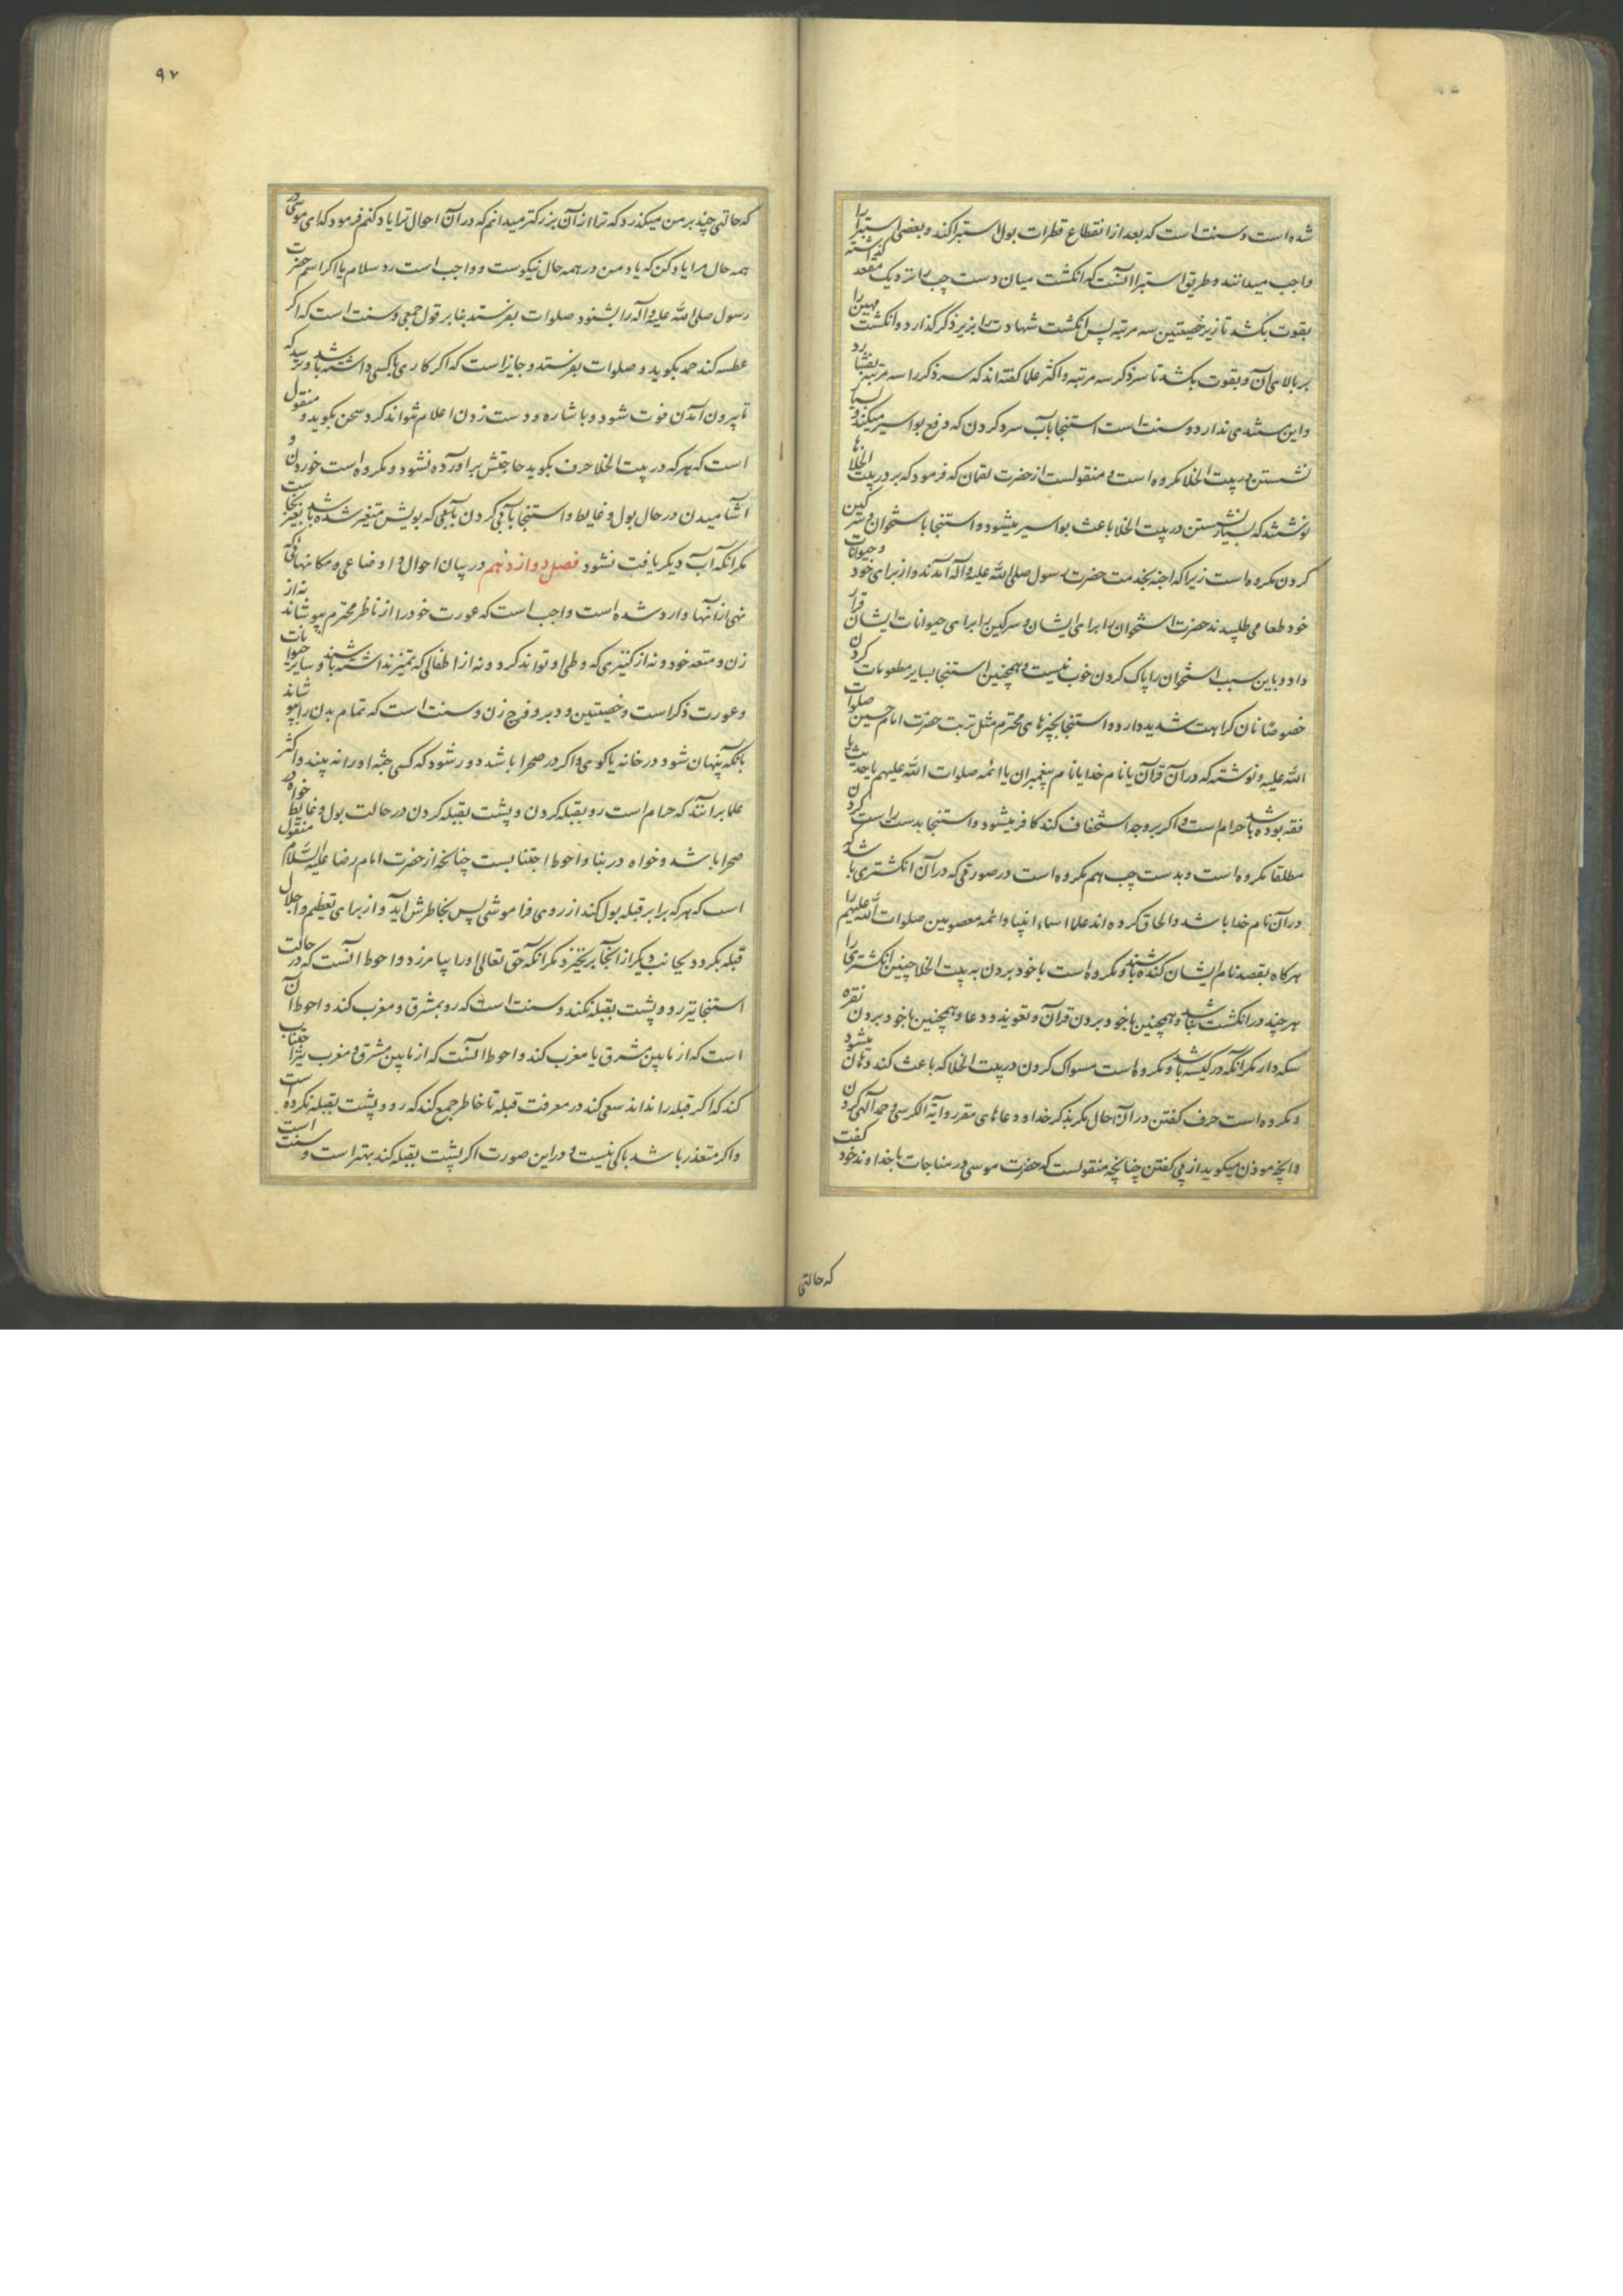 شده است و سنت است که بعد از انقطاع قطرات بول استبرا کند و بعضی استبرا را
واجب میدانند و طریق استبرا آنست که انکشت میان دست چپ را نزدیک مقعد گذاشته
بقوت بکشد تا زیر خصیتین سه مرتبه پس انکشت شهادت را بزیر ذکر گذارد و انکشت مهین را
بر بالای آن و بقوت بکشد تا سر ذکر سه مرتبه و اکثر علما کفته‌اند که سر ذکر را سه مرتبه بفشارد
و این سندی ندارد و سنت است استنجا بآب سرد کردن که دفع بواسیر میکند و بسیار
نشستن در بیت الخلا مکروه است و منقولست از حضرت لقمان که فرمود که بر در بیت الخلاها
نوشتند که بسیار نشستن در بیت الخلا باعث بواسیر میشود و استنجا باستخوان و سرکین
کردن مکروه است زیرا که اجنه بخدمت حضرت رسول صلی الله علیه و آله آمدند و از برای خود و حیوانات
خود طعامی طلبیدند حضرت استخوان را برای ایشان و سرکین را برای حیوانات ایشان قرار
داد و باین سبب استخوان را پاک کردن خوب نیست و همچنین استنجا بسایر مطعومات کردن
خصوصا نان کراهت شدید دارد و استنجا بچیزهای محترم مثل تربت حضرت امام حسین صلوات
الله علیه و نوشته که در آن قرآن یا نام خدا یا نام پیغمبران یا ائمه صلوات الله علیهم یا حدیث یا
فقه بوده باشد حرام است و اکر بر وجه استخفاف کند کافر میشود و استنجا بدست راست کردن
مطلقا مکروه است و بدست چپ هم مکروه است در صورتی که در آن انکشتری باشد که
در آن نام خدا باشد و الحاق کرده‌اند علما اسماء انبیا و ائمه معصومین صلوات الله علیهم را
هرکاه بقصد نام ایشان کنده باشند و مکروه است با خود بردن به بیت الخلا چنین انکشتری را
هر چند در انکشت نباشد و همچنین با خود بردن قرآن و تعویذ و دعا و همچنین با خود بردن نقره
سکه دار مکر آنکه در کیسه باشد و مکروه است مسواک کردن در بیت الخلا که باعث کند دهان میشود
و مکروه است حرف کفتن در آن حال مکر بذکر خدا و دعاهای مقرر و آیة الکرسی و حمد آلهی کردن
و آنچه موذن میکوید از پی کفتن چنانچه منقولست که حضرت موسی در مناجات با خداوند خود کفت
که حالتی
۹۷
که حالتی چند بر من میکذرد که ترا از آن بزرکتر میدانم که در آن احوال ترا یاد کنم فرمود که ای موسی در
همه حال مرا یاد کن که یاد من در همه حال نیکوست و واجب است رد سلام یا اکر اسم حضرت
رسول صلی الله علیه و آله را بشنود صلوات بفرستد بنا بر قول جمعی و سنت است که اکر
عطسه کند حمد بکوید و صلوات بفرستد و جایز است که اکر کاری با کسی داشته باشد و ترسد که
تا بیرون آمدن فوت شود و باشاره و دست زدن اعلام نتواند کرد سخن بکوید و منقول
است که هر که در بیت الخلا حرف بکوید حاجتش برآورده نشود و مکروه است خوردن و
آشامیدن در حال بول و غایط و استنجا بآبی کردن بآبی که بویش متغیر شده باشد بغیر نجاست
مکر آنکه آب دیکر یافت نشود فصل دوازدهم در بیان احوال و اوضاعی و مکانهائی که
نهی از آنها وارد شده است واجب است که عورت خود را از ناظر محترم بپوشاند نه از
زن و متعه خود و نه از کنیزی که وطی او تواند کرد و نه از اطفالی که تمیز نداشته باشند و سایر حیوانات
و عورت ذکر است و خصیتین و دبر و فرج زن و سنت است که تمام بدن را بپوشاند
بآنکه پنهان شود در خانه یا کوی و اکر در صحرا باشد دور شود که کسی جثه او را نه بیند و اکثر
علما برآنند که حرام است رو بقبله کردن و پشت بقبله کردن در حالت بول و غایط خواه در
صحرا باشد و خواه در بنا و احوط اجتنابست چنانچه از حضرت امام رضا علیه السلام منقول
است که هر که برابر قبله بول کند از روی فراموشی پس بخاطرش آید و از برای تعظیم و اجلال
قبله بکردد بجانب دیکر از آنجا برنخیزد مکر آنکه حق تعالی او را بیامرزد و احوط آنست که در حالت
استنجا نیز رو و پشت بقبله نکند و سنت است که رو بمشرق و مغرب کند و احوط آن
است که از مابین مشرق یا مغرب کند و احوط آنست که از مابین مشرق و مغرب نیز اجتناب
کند که اکر قبله را نداند سعی کند در معرفت قبله تا خاطر جمع کند که رو و پشت بقبله نکرده است
و اکر متعذر باشد باکی نیست و در این صورت اکر پشت بقبله کند بهتر است و سنت است